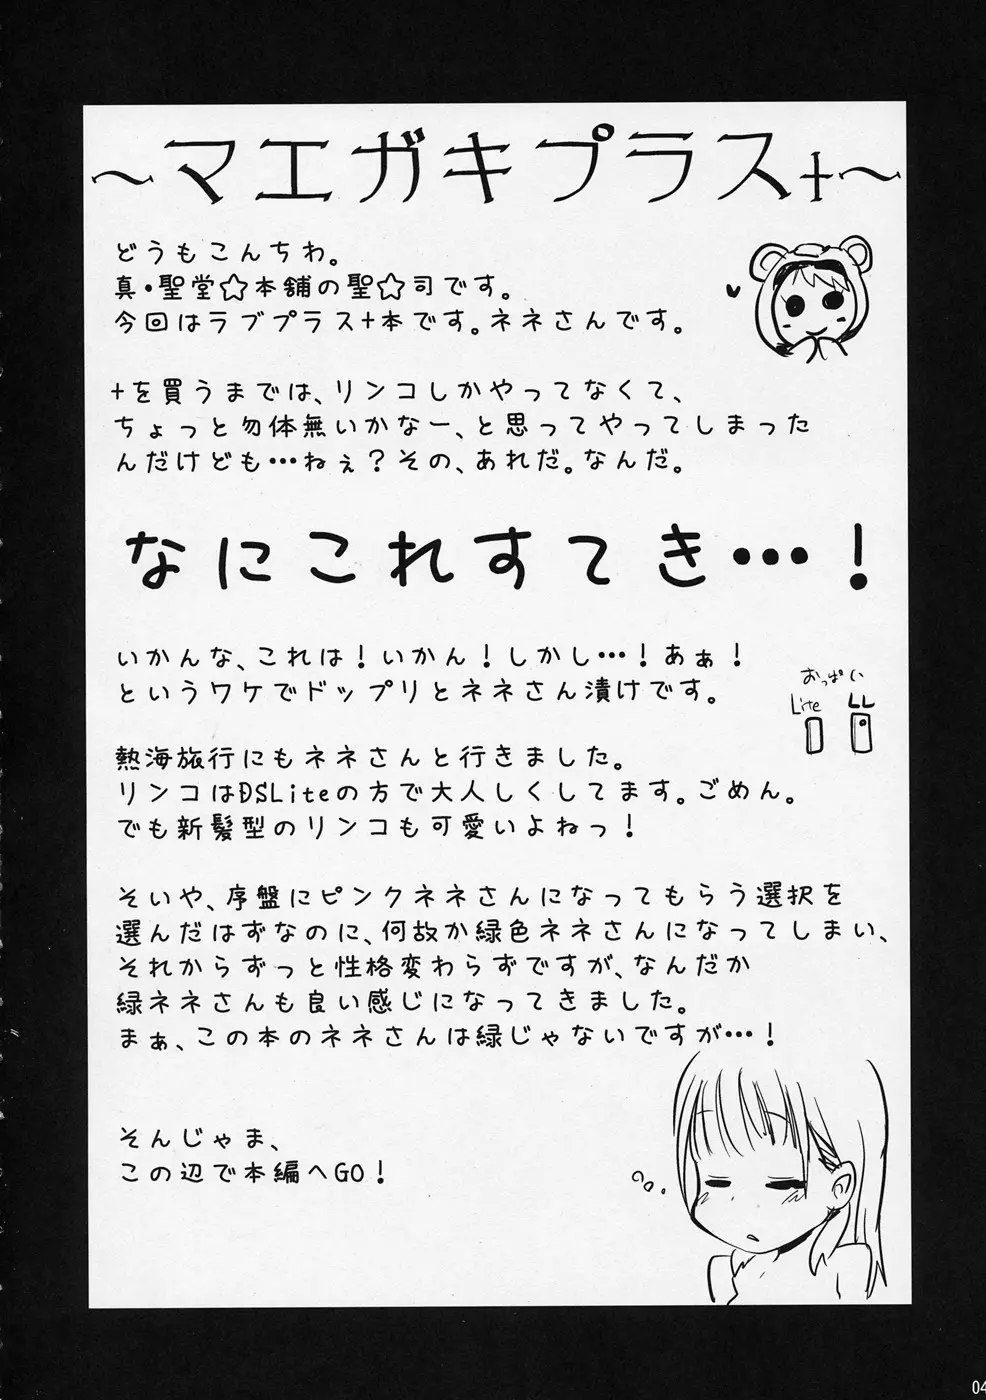 ～マエガキプラス+～
どうもこんちわ。
真・聖堂☆本舗の聖☆司です。
今回はラブプラス+本です。ネネさんです。
+を買うまでは、リンコしかやってなくて、
ちょっと勿体無いかなー、と思ってやってしまった
んだけども…ねぇ？その、あれだ。なんだ。
なにこれすてき…！
いかんな、これは！いかん！しかし…！あぁ！
というワケでドップリとネネさん漬けです。
おっぱい
Lite LL
熱海旅行にもネネさんと行きました。
リンコはDSLiteの方で大人しくしてます。ごめん。
でも新髪型のリンコも可愛いよねっ！
そいや、序盤にピンクネネさんになってもらう選択を
選んだはずなのに、何故か緑色ネネさんになってしまい、
それからずっと性格変わらずですが、なんだか
緑ネネさんも良い感じになってきました。
まぁ、この本のネネさんは緑じゃないですが…！
そんじゃま、
この辺で本編へGO！
04